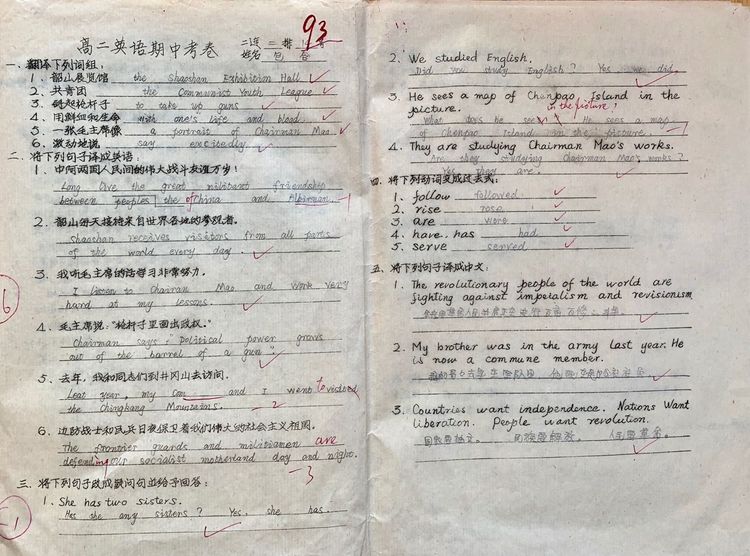 93
高二英语期中考卷
二连 三排
姓名 包
一、翻译下列词组：
1. 韶山展览馆 the Shaoshan Exhibition Hall
2. 共青团 the Communist Youth League
3. 拿起枪杆子 to take up guns
4. 用鲜血和生命 with one's life and blood
5. 一张毛主席像 a portrait of Chairman Mao.
6. 激动地说 say excitedly
二、将下列句子译成英语：
1. 中阿两国人民间的伟大战斗友谊万岁！
Long live the great militant friendship
between peoples the of China and Alberman. -1
2. 韶山每天接待来自世界各地的参观者。
Shaoshan receives visitors from all parts
of the world every day.
3. 我听毛主席的话学习非常努力。
I listen to Chairan Mao and work very
hard at my lessons.
4. 毛主席说："枪杆子里面出政权。"
Chairman says: Political power grows
out of the barrel of a gun".
5. 去年，我和同志们到井冈山去访问。
Last year, my Com and I went to visited
the Chinghang Mountains. -2
6. 边防战士和民兵日夜保卫着我们伟大的社会主义祖国。
The frontier guards and militiamen are
defending our socialist motherland day and night.
-3
三、将下列句子改成疑问句並给予回答：
1. She has two sisters.
Has she any sisters? Yes, she has.
-6
-1
2. We studied English.
Did you study English? Yes we did.
3. He sees a map of Chenpao Island in the
picture.
in the picture?
What does he see? He sees a map
of Chenpao Island in the picture. -1
4. They are studying Chairman Mao's works.
Are they studying Chairman Mao's works?
Yes they are.
四、将下列动词变成过去式：
1. follow followed
2. rise rose
3. are were
4. have. has had
5. serve served
五、将下列句子译成中文：
1. The revolutionary people of the world are
fighting against impeialism and revisionism
2. My brother was in the army last year. He
is now a commune member.
3. Countries want independence. Nations Want
liberation. People want revolution.
国家要独立。 民族要解放。 人民要革命。